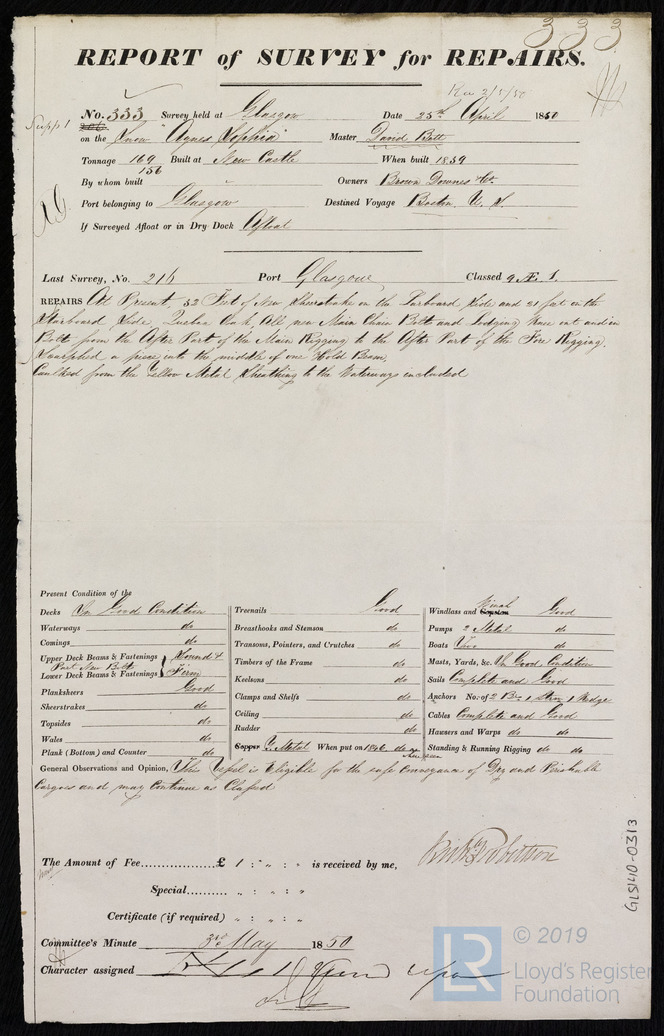 333
REPORT of SURVEY for REPAIRS.
Rec 2/5/50
No. 333 Survey held at Glasgow Date 25th April 1850
on the Snow "Agnes Sophia" Master David Bett
Tonnage 169 Built at New Castle When built 1839
156
By whom built Owners Brown Downes & Co.
Port belonging to Glasgow Destined Voyage Boston U. S.
If Surveyed Afloat or in Dry Dock Afloat
Last Survey, No. 216 Port Glasgow Classed 9 Æ 1.
REPAIRS At Present 32 Feet of New Sheerstrake on the Larboard Side and 21 feet on the
Starboard Side, Quebec Oak, All new Main Chain Bolts and lodging Knee out and in
Bolts from the After Part of the Main Rigging to the After Part of the Fore Rigging.
Scarphed a piece into the middle of one Hold Beam.
Caulked from the Yellow Metal Sheathing to the Waterways included
Present Condition of the
Decks In Good Condition
Waterways do
Comings do
Upper Deck Beams & Fastenings Sound &
Part New Bolts
Lower Deck Beams & Fastenings Firm
Planksheers Good
Sheerstrakes do
Topsides do
Wales do
Plank (Bottom) and Counter do
Treenails Good
Breasthooks and Stemson do
Transoms, Pointers, and Crutches do
Timbers of the Frame do
Keelsons do
Clamps and Shelfs do
Ceiling do
Rudder do
Copper Y. Metal When put on 1846 do
Windlass and Capstan Winch Good
Pumps 2 Metal do
Boats Two do
Masts, Yards, &c. In Good Condition
Sails Complete and Good
Anchors No. of 2 Br 1 Strm 1 Kedge
Cables Complete and Good
Hawsers and Warps do do
Standing & Running Rigging do do
General Observations and Opinion, This Vessel is Eligible for the safe conveyance of Dry and Perishable
Cargoes and may Continue as Classed
The Amount of Fee £ 1 : " : " is received by me,
Robertson
Special " : " : "
Certificate (if required) " : " : "
Committee's Minute 3rd May 1850
Character assigned
GLS140-0313
LR
© 2019
Lloyd's Register
Foundation